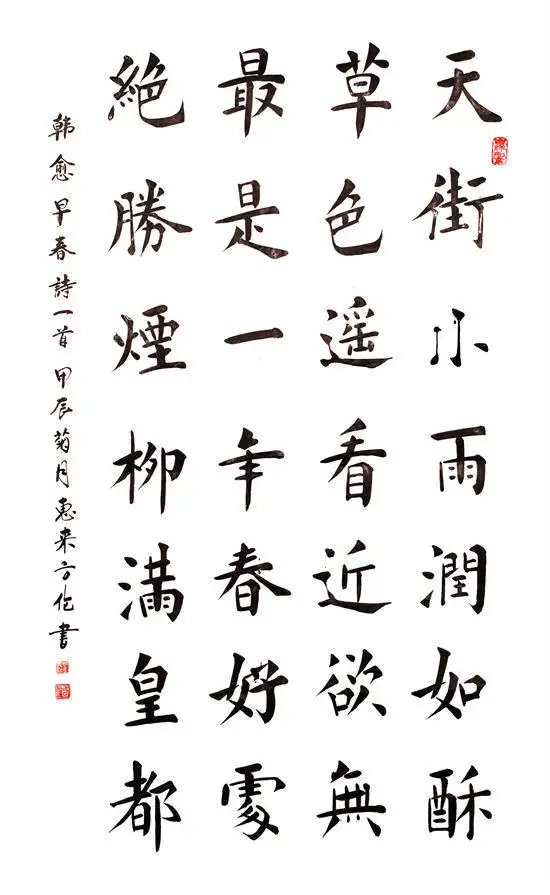 天街小雨潤如酥
草色遥看近欲無
最是一年春好處
絕勝煙柳滿皇都
韓愈早春詩一首甲辰菊月惠來方佗書